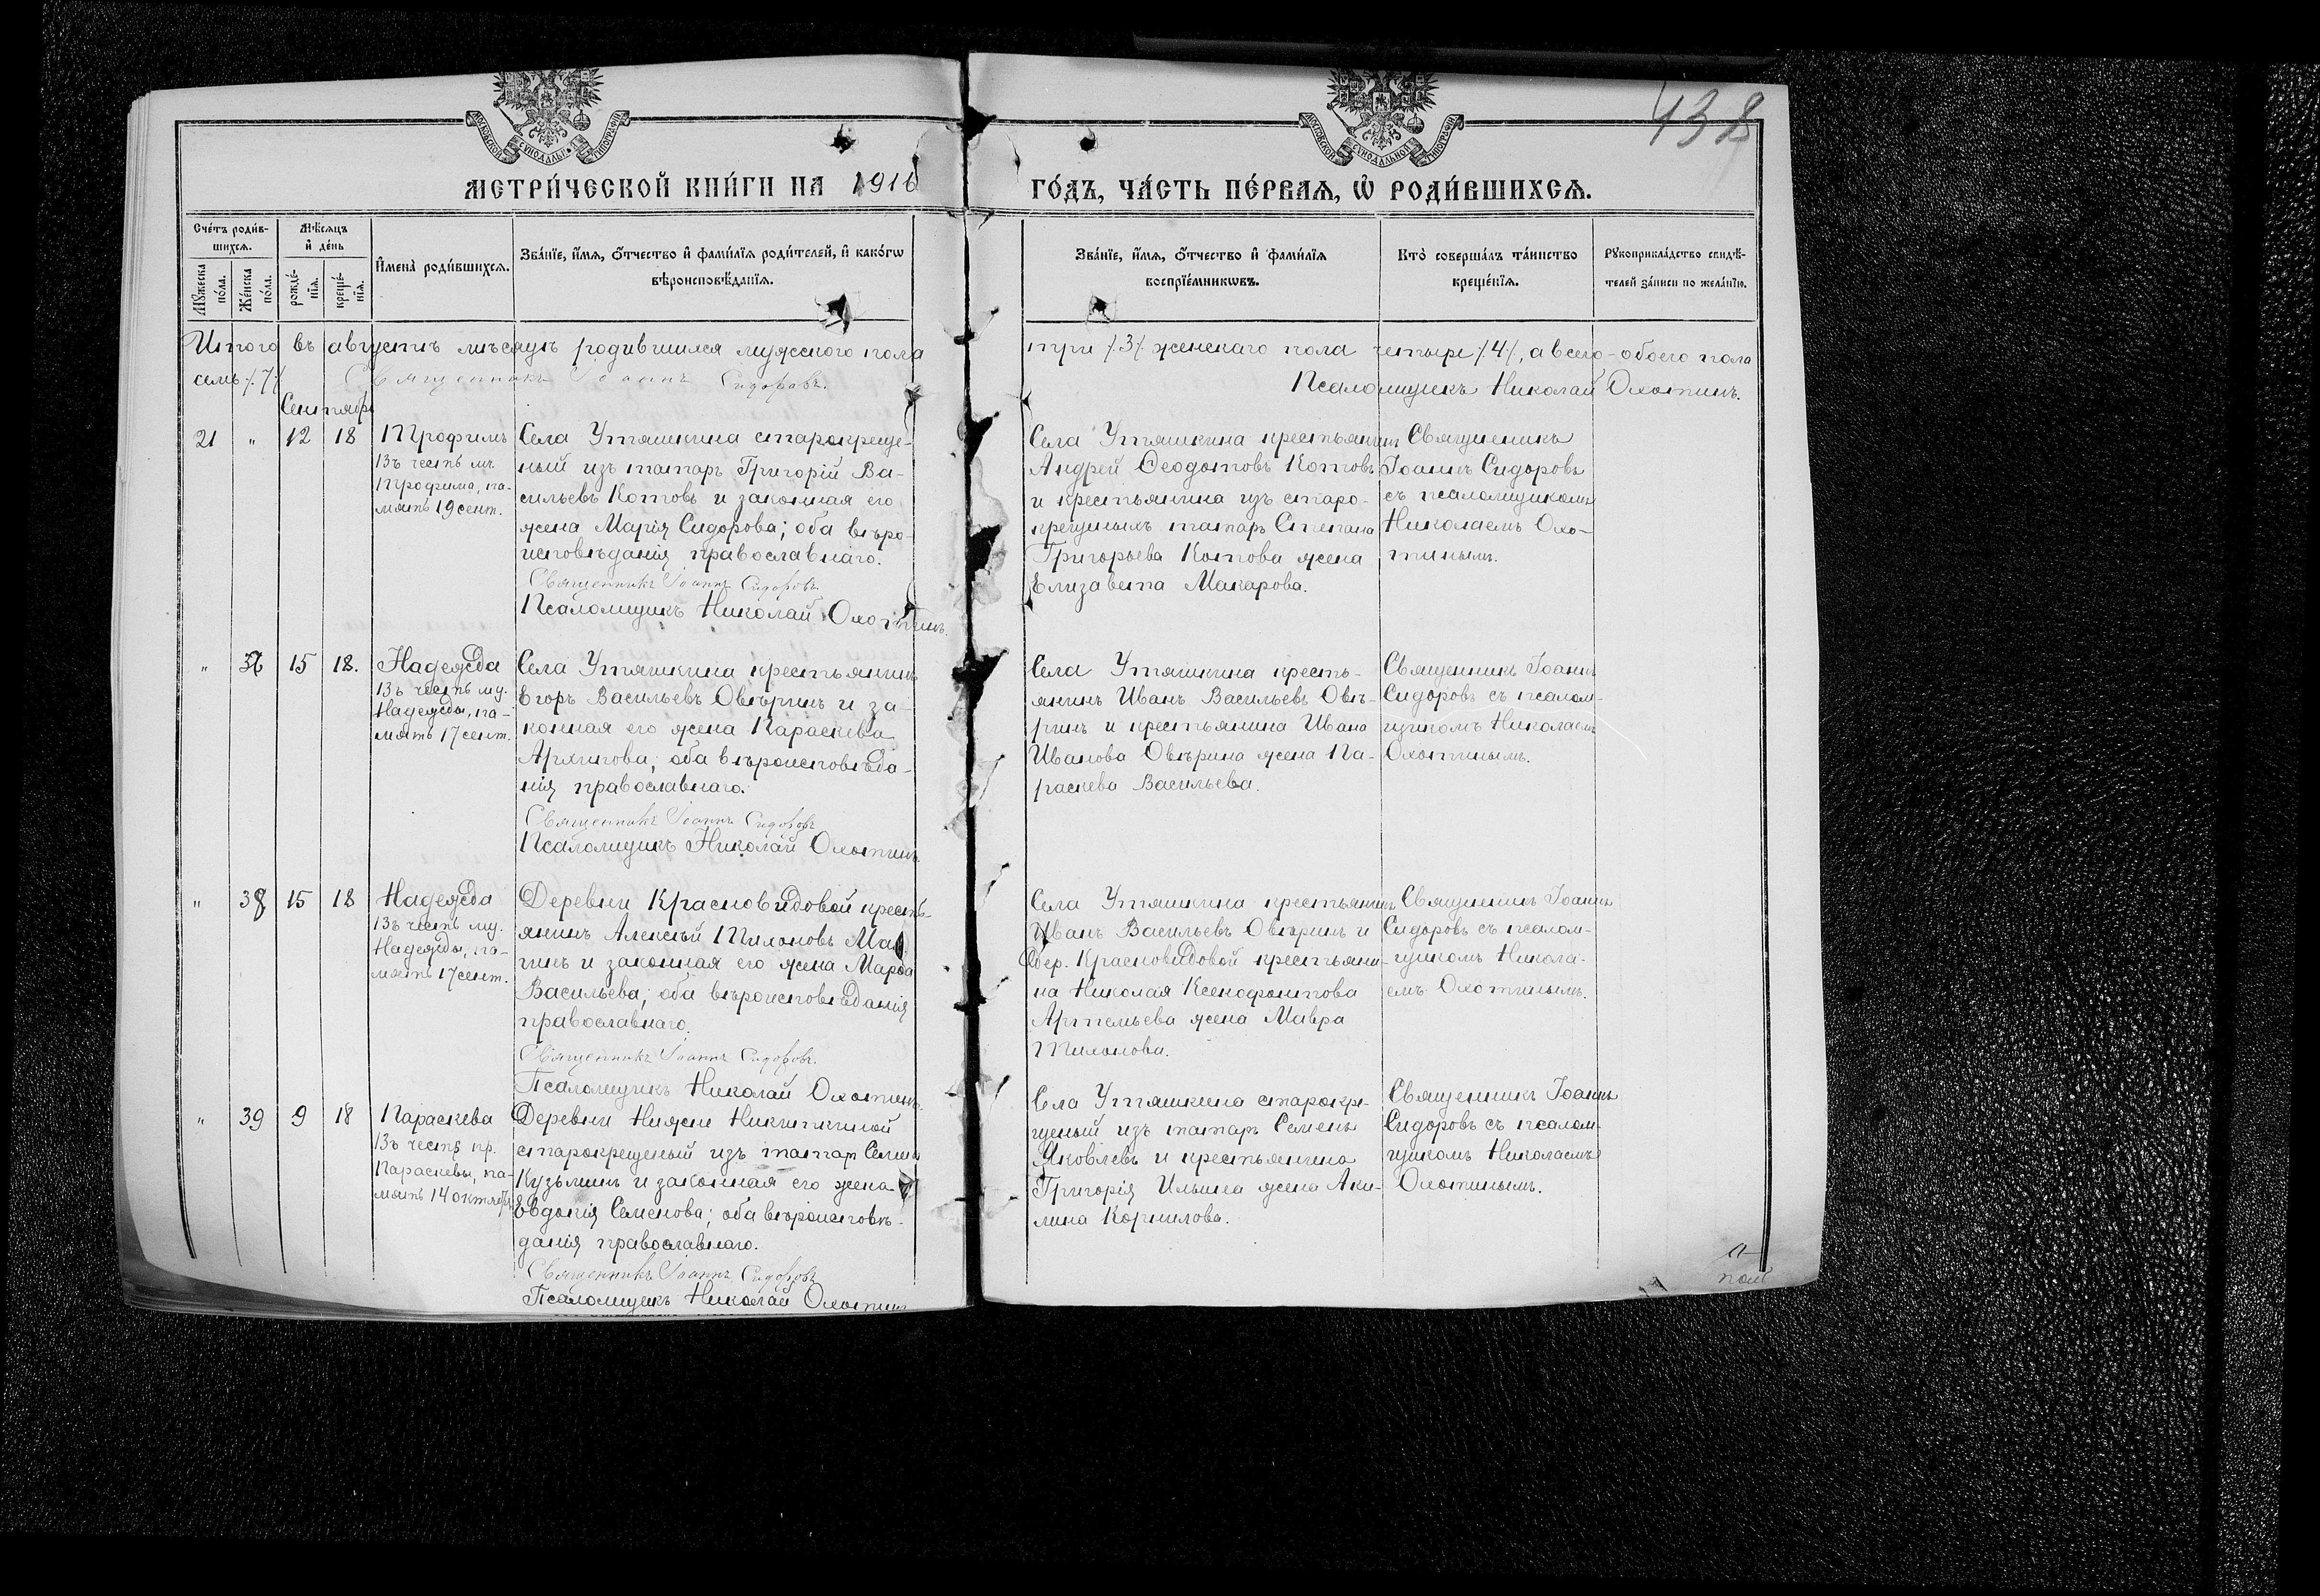 438
МОСКОВСКОЙ СУНОДАЛЬНОЙ ТИПОГРАФІИ
МОСКОВСКОЙ СУНОДАЛЬНОЙ ТИПОГРАФІИ
МЕТРИ́ЧЕСКОЙ КНИ́ГИ НА 1916
ГО́ДЪ, ЧА́СТЬ ПЕ́РВАѦ, Ѡ РОДИ́ВШИХСѦ.
Сче́тъ роди́в-
шихсѧ.
Мѣ́сѧцъ
и҆ де́нь
Мꙋ́жеска
по́ла.
Же́нска
по́ла.
рожде́-
нїѧ.
креще́-
нїѧ.
И҆мена̀ роди́вшихсѧ.
Зва́нїе, и҆́мѧ, ѻ҆́тчество и҆ фами́лїѧ роди́телей, и҆ како́гѡ
вѣроисповѣ́данїѧ.
Зва́нїе, и҆́мѧ, ѻ҆́тчество и҆ фами́лїѧ
воспрїе́мникѡвъ.
Кто̀ соверша́лъ та́инство
креще́нїѧ.
Рꙋкоприкла́дство свидѣ́-
телей за́писи по жела́нїю.
Итого въ августѣ мѣсяцѣ родившихся мужескаго пола
три /.3/. женскаго пола четыре /.4/., а всего обоего пола
семь /.7/.
Священникъ Іоаннъ Сидоровъ.
Псаломщикъ Николай Охотинъ.
Сентябрь
21 " 12 18
Трофимъ
Въ честь мч.
Трофима, па-
мять 19 сент.
Села Утяшкина старокреще-
ный изъ татаръ Григорій Ва-
сильевъ Котовъ и законная его
жена Марія Сидорова; оба вѣро-
исповѣданія православнаго.
Священникъ Іоаннъ Сидоровъ.
Псаломщикъ Николай Охотинъ.
Села Утяшкина крестьянинъ
Андрей Ѳеодотовъ Котовъ
и крестьянина изъ старо-
крещеныхъ татаръ Степана
Григорьева Котова жена
Елизавета Макарова.
Священникъ
Іоаннъ Сидоровъ
съ псаломщикомъ
Николаемъ Охо-
тинымъ.
" 15 18.
Надежда
Въ честь му.
Надежды, па-
мять 17 сент.
Села Утяшкина крестьянинъ
Егоръ Васильевъ Овѣринъ и за-
конная его жена Параскева
Архипова; оба вѣроисповѣда-
нія православнаго.
Священникъ Іоаннъ Сидоровъ
Псаломщикъ Николай Охотинъ.
Села Утяшкина кресть-
янинъ Иванъ Васильевъ Овѣ-
ринъ и крестьянина Ивана
Иванова Овѣрина жена Па-
раскева Васильева.
Священникъ Іоаннъ
Сидоровъ съ псалом-
щикомъ Николаемъ
Охотинымъ.
" 38 15 18
Надежда
Въ честь му.
Надежды, па-
мять 17 сент.
Деревни Красновидовой кресть-
янинъ Алексѣй Тихоновъ
и законная его жена Марѳа
Васильева; оба вѣроисповѣданія
православнаго.
Священникъ Іоаннъ Сидоровъ.
Псаломщикъ Николай Охотинъ.
Села Утяшкина крестьянинъ
Иванъ Васильевъ Овѣринъ и
дер. Красновидовой крестьяни-
на Николая Ксенофонтова
Артемьева жена Мавра
Тихонова.
Священникъ Іоаннъ
Сидоровъ съ псалом-
щикомъ Никола-
емъ Охотинымъ.
" 39 9 18
Параскева
Въ честь пр.
Параскевы, па-
мять 14 октября
Деревни Нижне Никиткиной
старокрещеный изъ татаръ
Кузьминъ и законная его жена
Евдокія Семенова; оба вѣроисповѣ-
данія православнаго.
Священникъ Іоаннъ Сидоровъ
Псаломщикъ Николай Охотинъ
Села Утяшкина старокре-
щеный изъ татаръ Семенъ
Яковлевъ и крестьянина
Григорія Ильина жена Аки-
лина Корнилова.
Священникъ Іоаннъ
Сидоровъ съ псалом-
щикомъ Николаемъ
Охотинымъ.